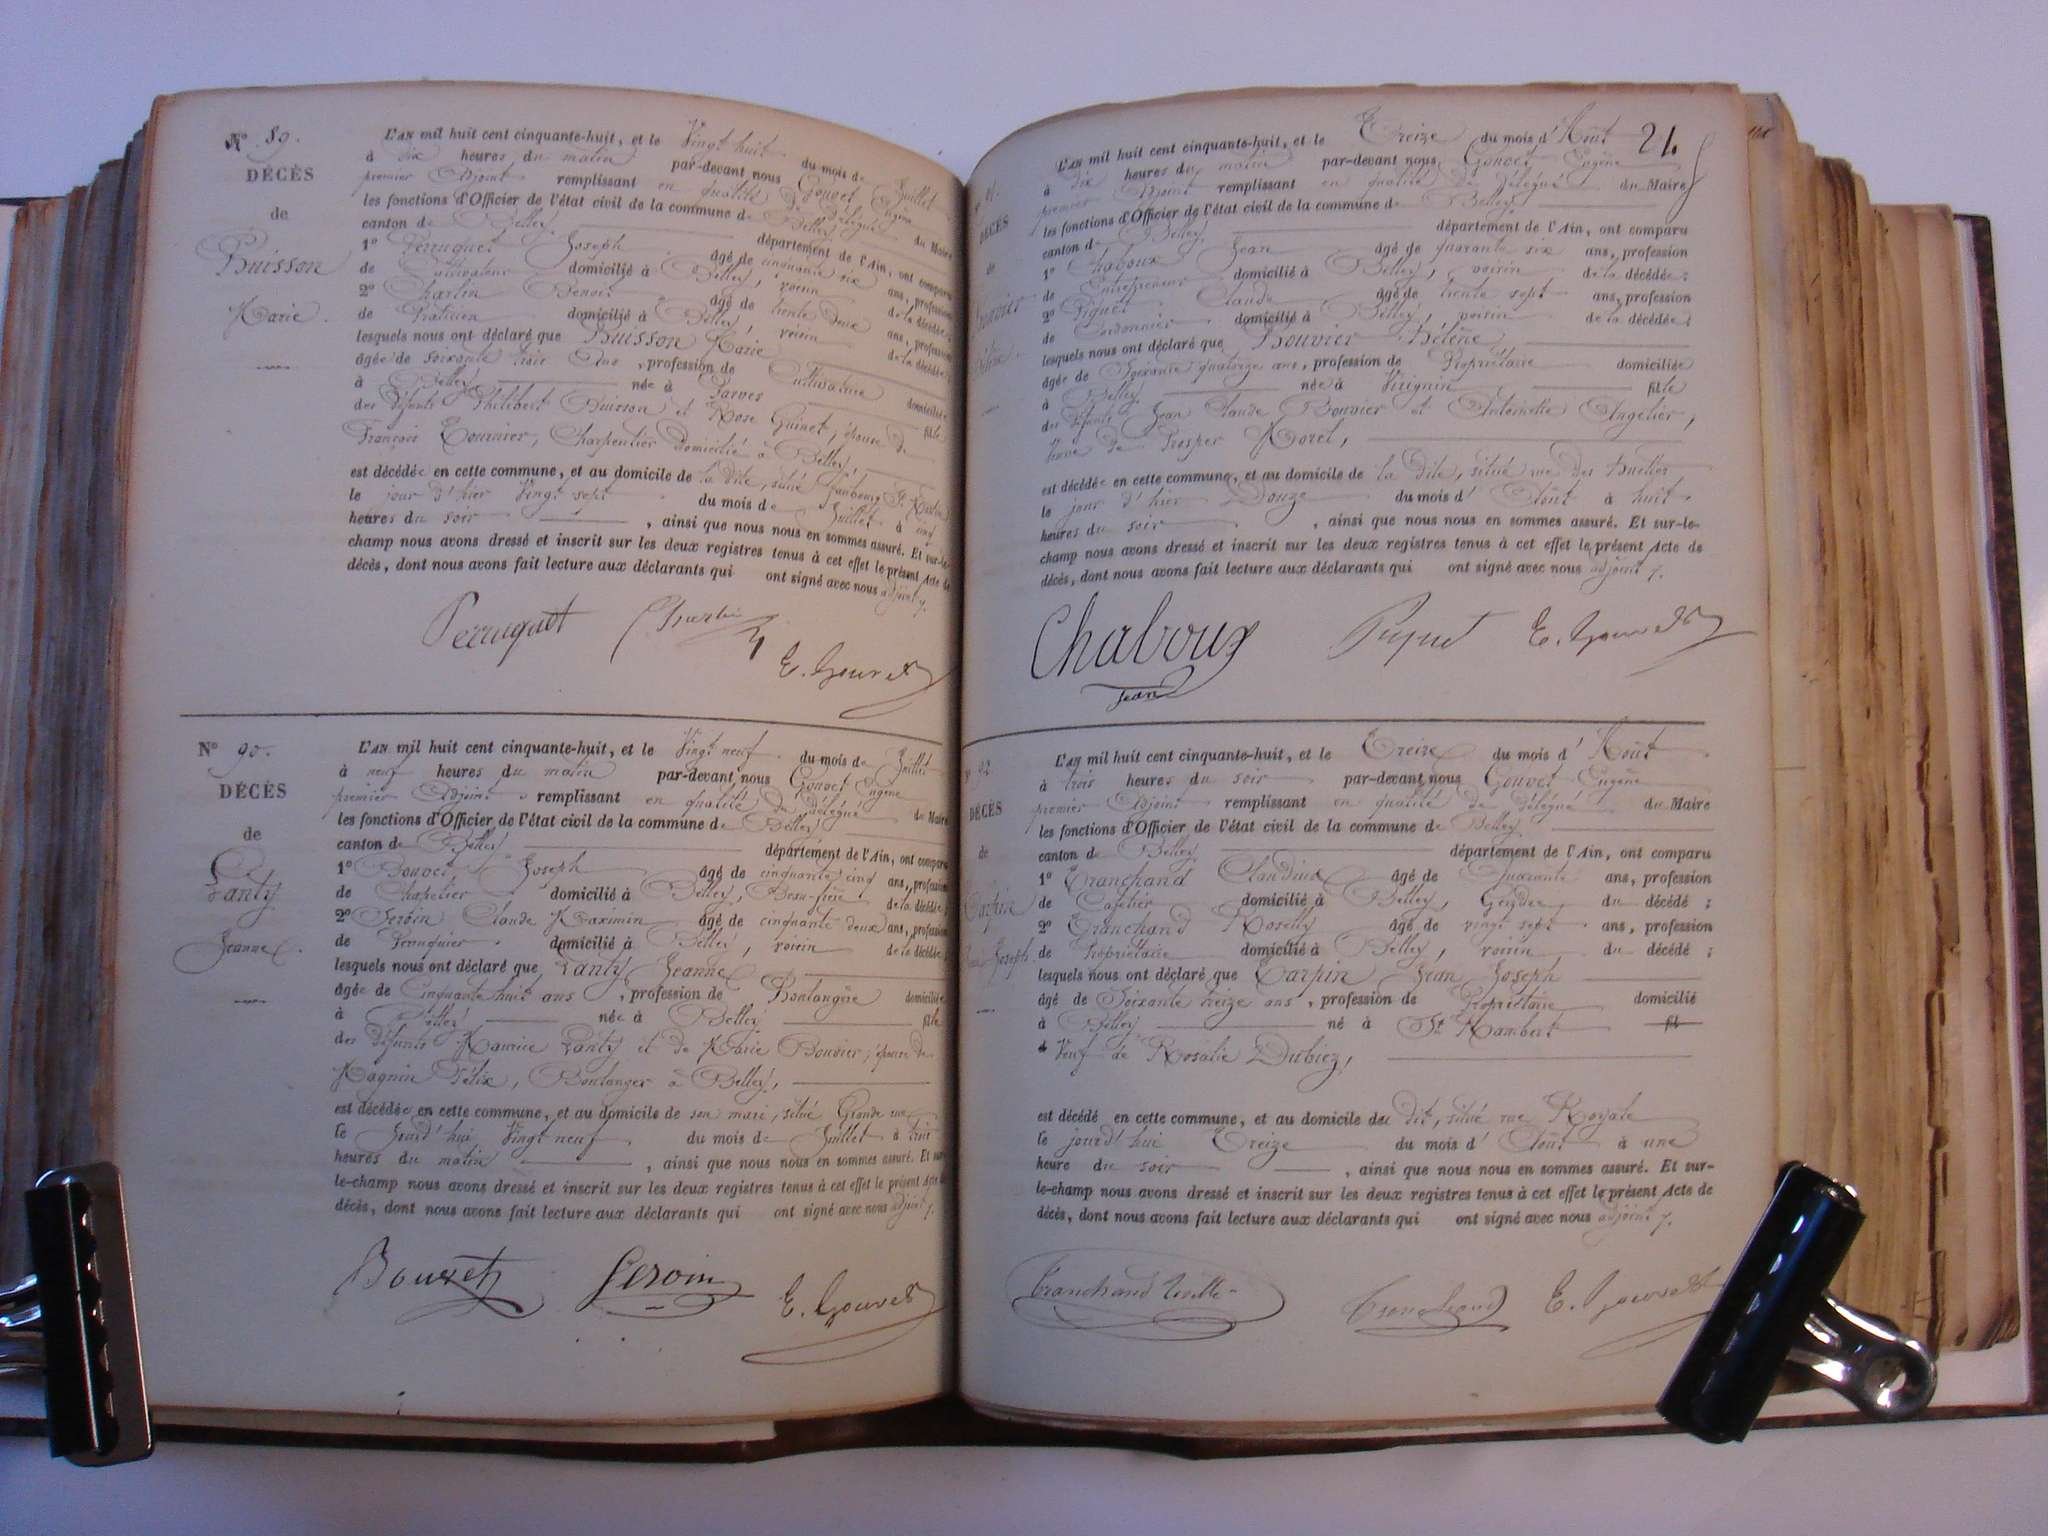 N° 89.
DÉCÈS
de
Buisson
Marie.
L'AN mil huit cent cinquante-huit, et le Vingt huit du mois de Juillet
à dix heures du matin par-devant nous Gouvet Eugène
premier Adjoint remplissant en qualité de Délégué du Maire
les fonctions d'Officier de l'état civil de la commune de Belley
canton de Belley département de l'Ain, ont comparu
1° Perruquet Joseph âgé de cinquante six ans, profession
de Cultivateur domicilié à Belley, voisin de la décédée;
2° Charlin Benoit âgé de trente deux ans, profession
de Praticien domicilié à Belley, voisin de la décédée;
lesquels nous ont déclaré que Buisson Marie
âgée de soixante trois Ans, profession de Cultivatrice domiciliée
à Belley née à Parves fille
des défunts Philibert Buisson et Rose Guinet, épouse de
François Tournier, Charpentier domicilié à Belley,
est décédée en cette commune, et au domicile de la dite, situé faubourg St Martin
le jour d'hier Vingt sept du mois de Juillet à cinq
heures du soir, ainsi que nous nous en sommes assuré. Et sur-le-
champ nous avons dressé et inscrit sur les deux registres tenus à cet effet le présent Acte de
décès, dont nous avons fait lecture aux déclarants qui ont signé avec nous adjoint
Perruquet Charlin E. Gouvet
N° 90.
DÉCÈS
de
Lanty
Jeanne.
L'AN mil huit cent cinquante-huit, et le Vingt neuf du mois de Juillet
à neuf heures du matin par-devant nous Gouvet Eugène
premier Adjoint remplissant en qualité de Délégué du Maire
les fonctions d'Officier de l'état civil de la commune de Belley
canton de Belley département de l'Ain, ont comparu
1° Bouvet Joseph âgé de cinquante cinq ans, profession
de Chapelier domicilié à Belley, Beau-frère de la décédée;
2° Claude Maximin âgé de cinquante deux ans, profession
de Perruquier domicilié à Belley, voisin de la décédée;
lesquels nous ont déclaré que Lanty Jeanne
âgée de Cinquante huit ans, profession de Boulangère domiciliée
à Belley née à Belley fille
des défunts Maurice Lanty et de Marie Bouvier; épouse de
Magnin Félix, Boulanger à Belley,
est décédée en cette commune, et au domicile de son mari, situé Grande rue
le Jourd'hui Vingt neuf du mois de Juillet à
heures du matin, ainsi que nous nous en sommes assuré. Et sur-
le-champ nous avons dressé et inscrit sur les deux registres tenus à cet effet le présent Acte de
décès, dont nous avons fait lecture aux déclarants qui ont signé avec nous adjoint
Bouvet E. Gouvet
21
DÉCÈS
de
Bouvier
L'AN mil huit cent cinquante-huit, et le Treize du mois d'Août
à dix heures du matin par-devant nous Gouvet Eugène
premier Adjoint remplissant en qualité de Délégué du Maire
les fonctions d'Officier de l'état civil de la commune de Belley
canton de Belley département de l'Ain, ont comparu
1° Chaboux Jean âgé de quarante six ans, profession
de Entrepreneur domicilié à Belley, voisin de la décédée;
2° Piquet Claude âgé de trente sept ans, profession
de Cordonnier domicilié à Belley, voisin de la décédée;
lesquels nous ont déclaré que Bouvier Hélène
âgée de Soixante quatorze ans, profession de Propriétaire domiciliée
à Belley née à Virignin fille
des défunts Jean Claude Bouvier et Antoinette Angelier,
Veuve de Prosper Morel,
est décédée en cette commune, et au domicile de la dite, situé rue des
le jour d'hier Douze du mois d'Août à huit
heures du soir, ainsi que nous nous en sommes assuré. Et sur-le-
champ nous avons dressé et inscrit sur les deux registres tenus à cet effet le présent Acte de
décès, dont nous avons fait lecture aux déclarants qui ont signé avec nous adjoint
Chaboux Piquet E. Gouvet
Jean
92
DÉCÈS
de
Carpin
Jean Joseph.
L'AN mil huit cent cinquante-huit, et le Treize du mois d'Août
à trois heures du soir par-devant nous Gouvet Eugène
premier Adjoint remplissant en qualité de délégué du Maire
les fonctions d'Officier de l'état civil de la commune de Belley
canton de Belley département de l'Ain, ont comparu
1° Tranchand Claudius âgé de Quarante ans, profession
de Cafetier domicilié à Belley, Gendre du décédé;
2° Tranchand Roselly âgé de vingt sept ans, profession
de Propriétaire domicilié à Belley, voisin, du décédé;
lesquels nous ont déclaré que Carpin Jean Joseph
âgé de Soixante treize ans, profession de Propriétaire domicilié
à Belley né à St Rambert fil
Veuf de Rosalie Dubiez,
est décédé en cette commune, et au domicile du dit, situé rue Royale
le jourd'hui Treize du mois d'Août à une
heure du soir, ainsi que nous nous en sommes assuré. Et sur-
le-champ nous avons dressé et inscrit sur les deux registres tenus à cet effet le présent Acte de
décès, dont nous avons fait lecture aux déclarants qui ont signé avec nous adjoint
Tranchand Tranchand E. Gouvet